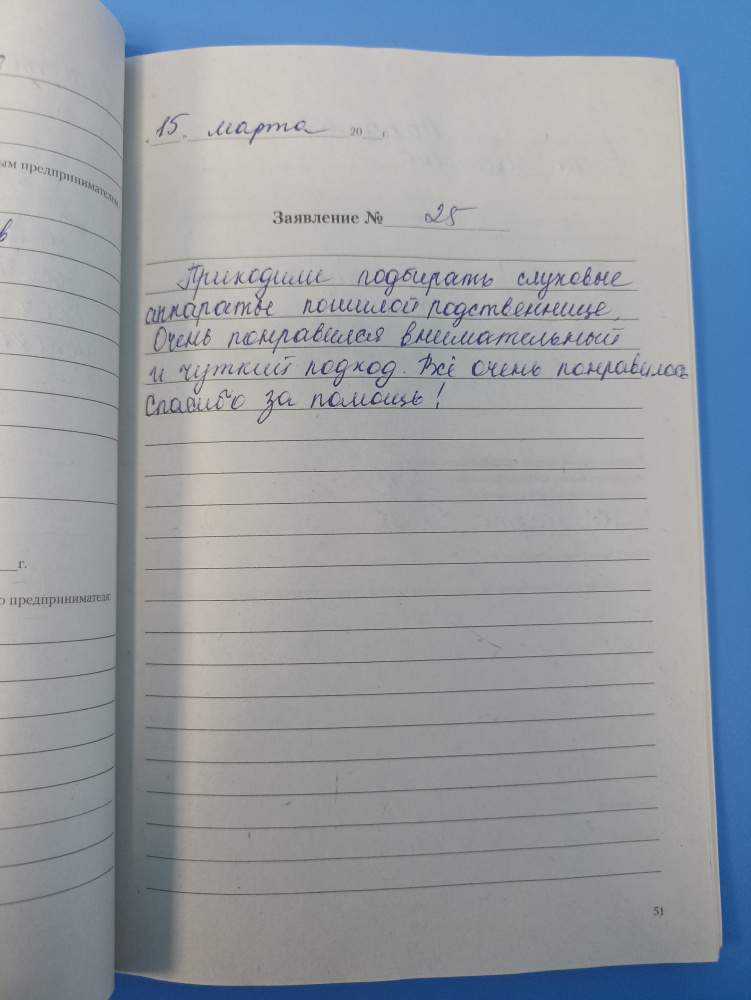 ым предпринимателем
в
г.
о предпринимателя:
15. марта 20 г.
Заявление № 25
Приходили подбирать слуховые
аппараты пожилой родственнице.
Очень понравился внимательный
и чуткий подход. Всё очень понравилось
Спасибо за помощь!
51